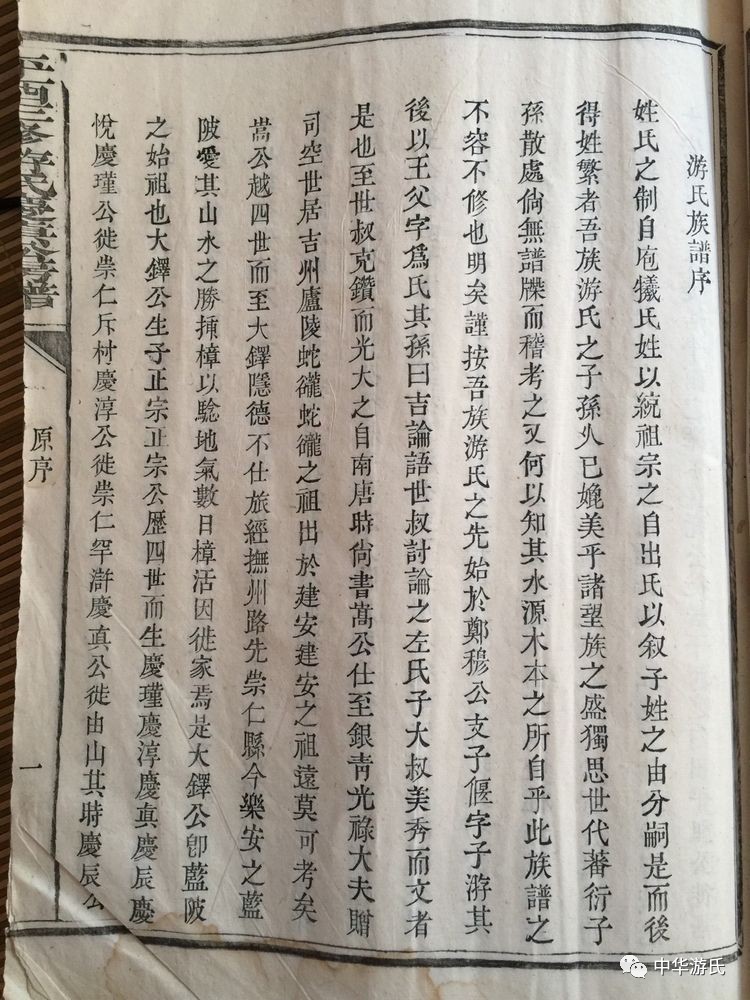 游氏族譜序
姓氏之制自庖犧氏姓以統祖宗之自出氏以叙子姓之由分嗣是而後
得姓繁者吾族游氏之子孫乆已媲美乎諸望族之盛獨思世代蕃衍子
孫散處倘無譜牒而稽考之又何以知其水源木本之所自乎此族譜之
不容不修也明矣謹按吾族游氏之先始於鄭穆公支子偃字子游其
後以王父字爲氏其孫曰吉論語世叔討論之左氏子大叔美秀而文者
是也至世叔克鑽而光大之自南唐時尙書萬公仕至銀靑光祿大夫贈
司空世居吉州廬陵蛇𧔥蛇𧔥之祖出於建安建安之祖遠莫可考矣
嵩公越四世而至大鐸隱德不仕旅經撫州路先崇仁縣今樂安之藍
陂愛其山水之勝揷樟以騐地氣數日樟活因徙家焉是大鐸公卽藍陂
之始祖也大鐸公生子正宗正宗公歷四世而生慶瑾慶淳慶眞慶辰慶
悅慶瑾公徙崇仁斥村慶淳公徙崇仁罕滸慶眞公徙由山其時慶辰公
修游氏慶眞公房譜
原序
一
中华游氏